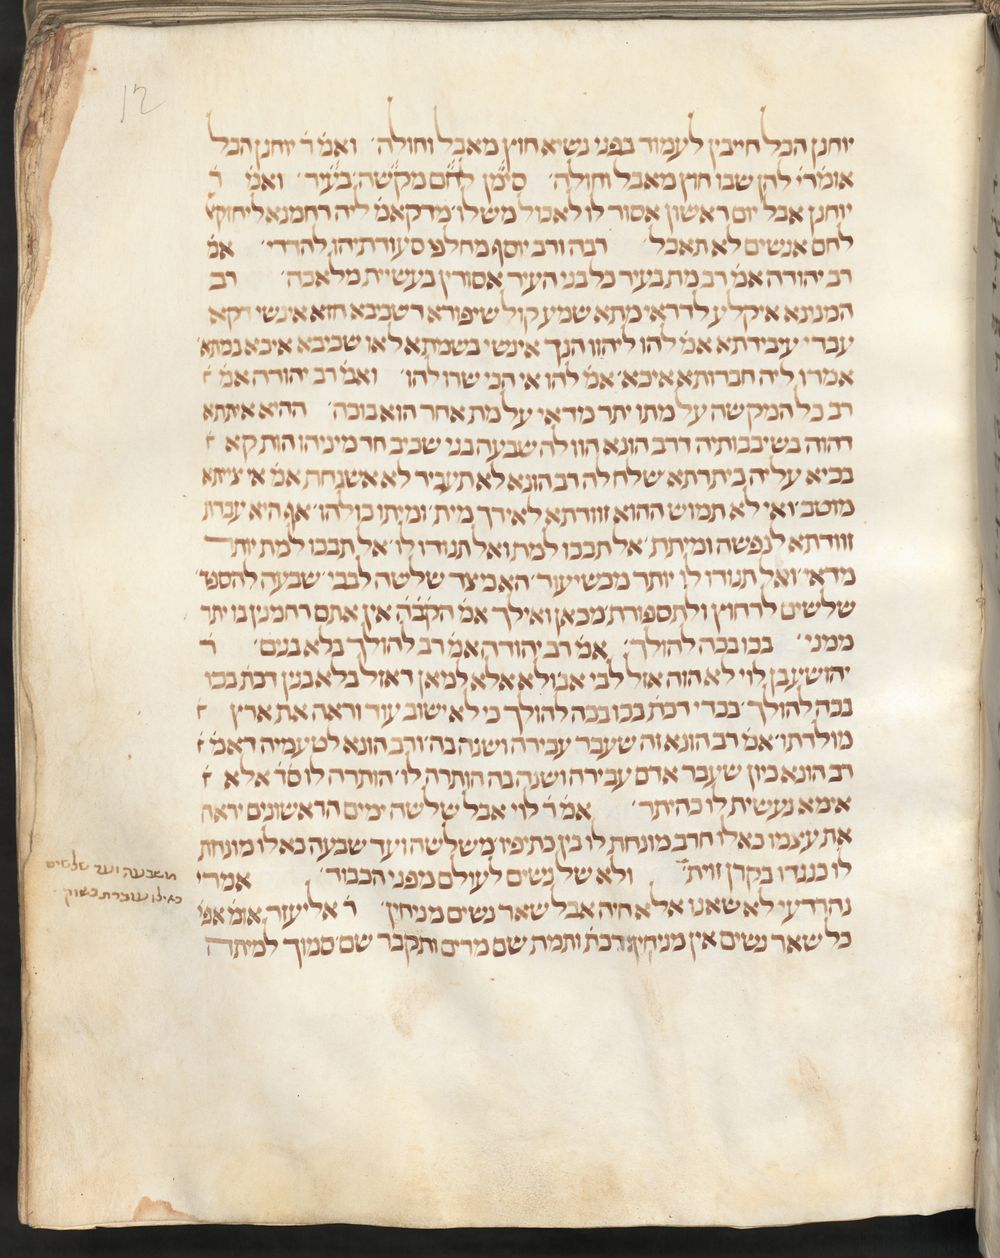 12
יוחנן הכל חייבין לעמוד בפני נשיא חוץ מאבל וחולה׳ ואמ׳ ר׳ יוחנן הכל
אומרי׳ להן שבו חוץ מאבל וחולה׳ סימן לחם מקשה במעיר׳ ואמ׳ ר׳
יוחנן אבל יום ראשון אסור לו לאכול משלו׳ מדקאמ׳ ליה רחמנא ליחזקי׳
לחם אנשים לא תאכל׳ רבה ורב יוסף מחלפי סעודתיהו להדדי׳ אמ׳
רב יהודה אמ׳ רב מת בעיר כל בני העיר אסורין בעשיית מלאכה׳ רב
המנונא איקלע לדראי מתא שמע קול שיפורא דשכיבא חזא אינשי דקא
עברי עיבידתא אמ׳ להו ליהוו הנך אינשי בשמתא לאו שכיבא איכא במתא
אמרו ליה חברותא איכא׳ אמ׳ להו אי הכי שרו להו׳ ואמ׳ רב יהודה אמ׳
רב כל המקשה על מתו יתר מדאי על מת אחר הוא בוכה׳ ההיא איתתא
דהוה בשיבבותיה דרב הונא הוו לה שבעה בני שכיב חד מיניהו הות קא
בכיא עליה ביתרתא שלח לה רב הונא לא תעביד לא אשגחת אמ׳ אי צייתא
מוטב ואי לא תמוש ההוא זוודתא לאידך מית׳ ומיתו כולהו׳ אף היא עברת
זוודתא לנפשה ומיתת׳ אל תבכו למת ואל תנודו לו׳ אל תבכו למת יותר
מדאי׳ ואל תנודו לו יותר מכשיעור׳ הא כיצד שלשה לבכי׳ שבעה להספד
שלשים לרחוץ ולתספורת׳ מכאן ואילך אמ׳ הקבה אין אתם רחמנין בו יתר
ממני׳ בכו בכה להולך׳ אמ׳ רב יהודה אמ׳ רב להולך בלא בנים׳ ר׳
יהושע בן לוי לא הוה אזל לבי אבולא אלא למאן דאזל בלא בנין דכת׳ בכו
בכה להולך׳ בכדי דכת׳ בכו בכה להולך כי לא ישוב עוד וראה את ארץ
מולדתו׳ אמ׳ רב הונא זה שעבר עבירה ושנה בה׳ ורב הונא לטעמיה דאמ׳
רב הונא כיון שעבר אדם עבירה ושנה בה הותרה לו׳ הותרה לו ס׳ד׳ אלא
אימא נעשית לו כהיתר׳ אמ׳ ר׳ לוי אבל שלשה ימים הראשונים יראה
את עצמו כאלו חרב מונחת לו בין כתיפיו׳ משלשה ועד שבעה כאלו מונחת
לו כנגדו בקרן זוית׳ ולא של נשים לעולם מפני הכבוד׳ אמרי
נהרדעי לא שאנו אלא חיה אבל שאר נשים מניחין׳ ר׳ אליעזר אומ׳ אפי׳
כל שאר נשים אין מניחין דכת׳ ותמת שם מרים ותקבר שם׳ סמוך למיתה
משבעה ועד שלשים
כאילו עוברת בשוק